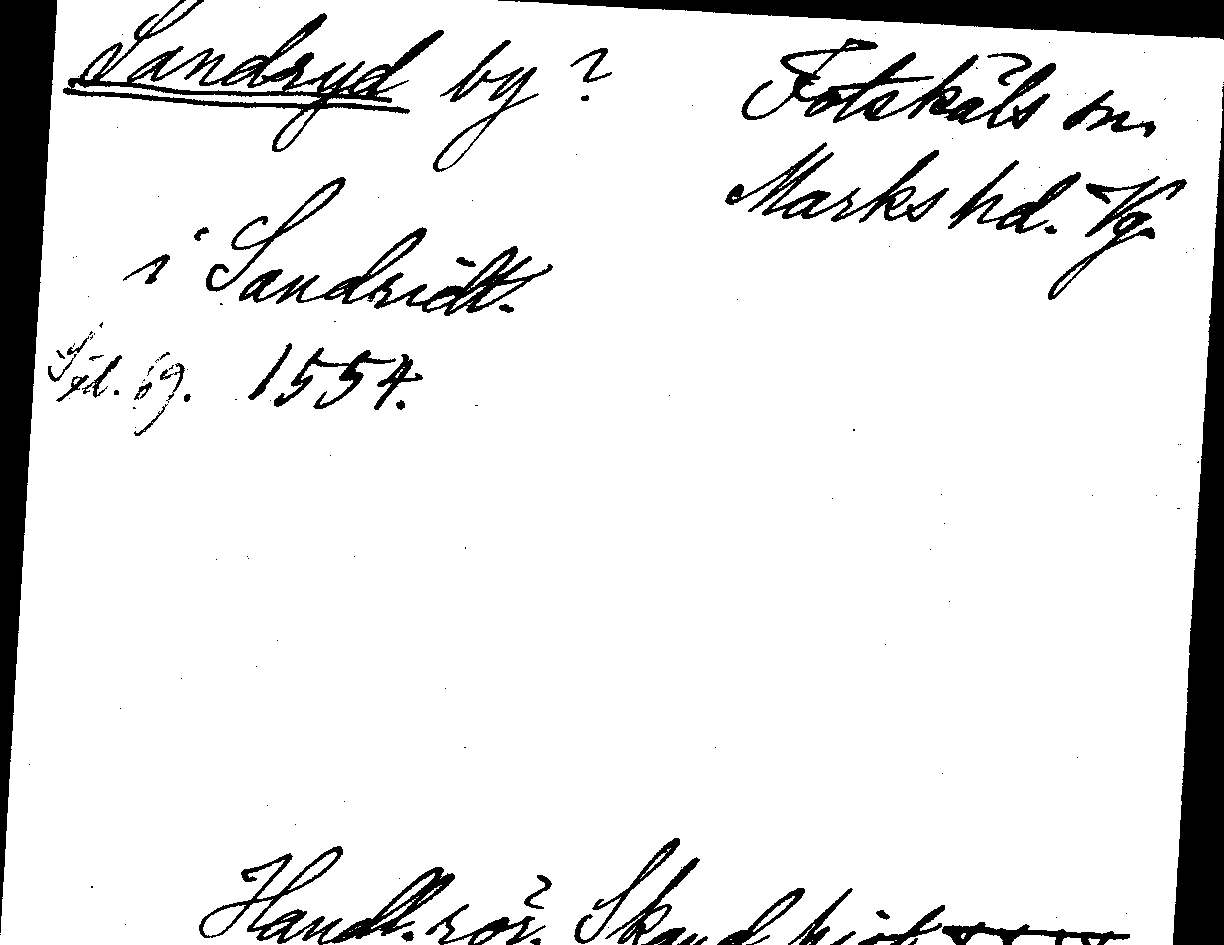 Sandryd by ?
Fotskäls sn.
Marks hd. Vg.
i Sandridt.
Jxd. 69. 1554.
Handl. rör. Skand. hist. XXIX